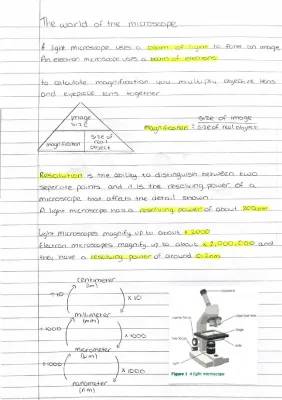 The world of the microscope
A light microscope uses a beam of light to form an image
An electron microscope uses a beam of electrons
to calculate magnification you multiply objective lens
and eyepiece lens together
image
size
magnification
size of
real
object
magnification = size of image
size of real object
Resolution is the ability to distinguish between two
seperate points and it is the resolving power of a
microscope that affects the detail shown
A light microscope has a resolving power of about 200nm
Light microscopes magnify up to about x 2000
Electron microscopes magnify up to about x 2,000,000 and
they have a resolving power of around 0.2nm
centimeter
(cm)
÷ 10
x 10
millimeter
(mm)
÷ 1000
x 1000
micrometer
(µm)
÷ 1000
x 1000
nanometer
(nm)
Figure 1 A light microscope